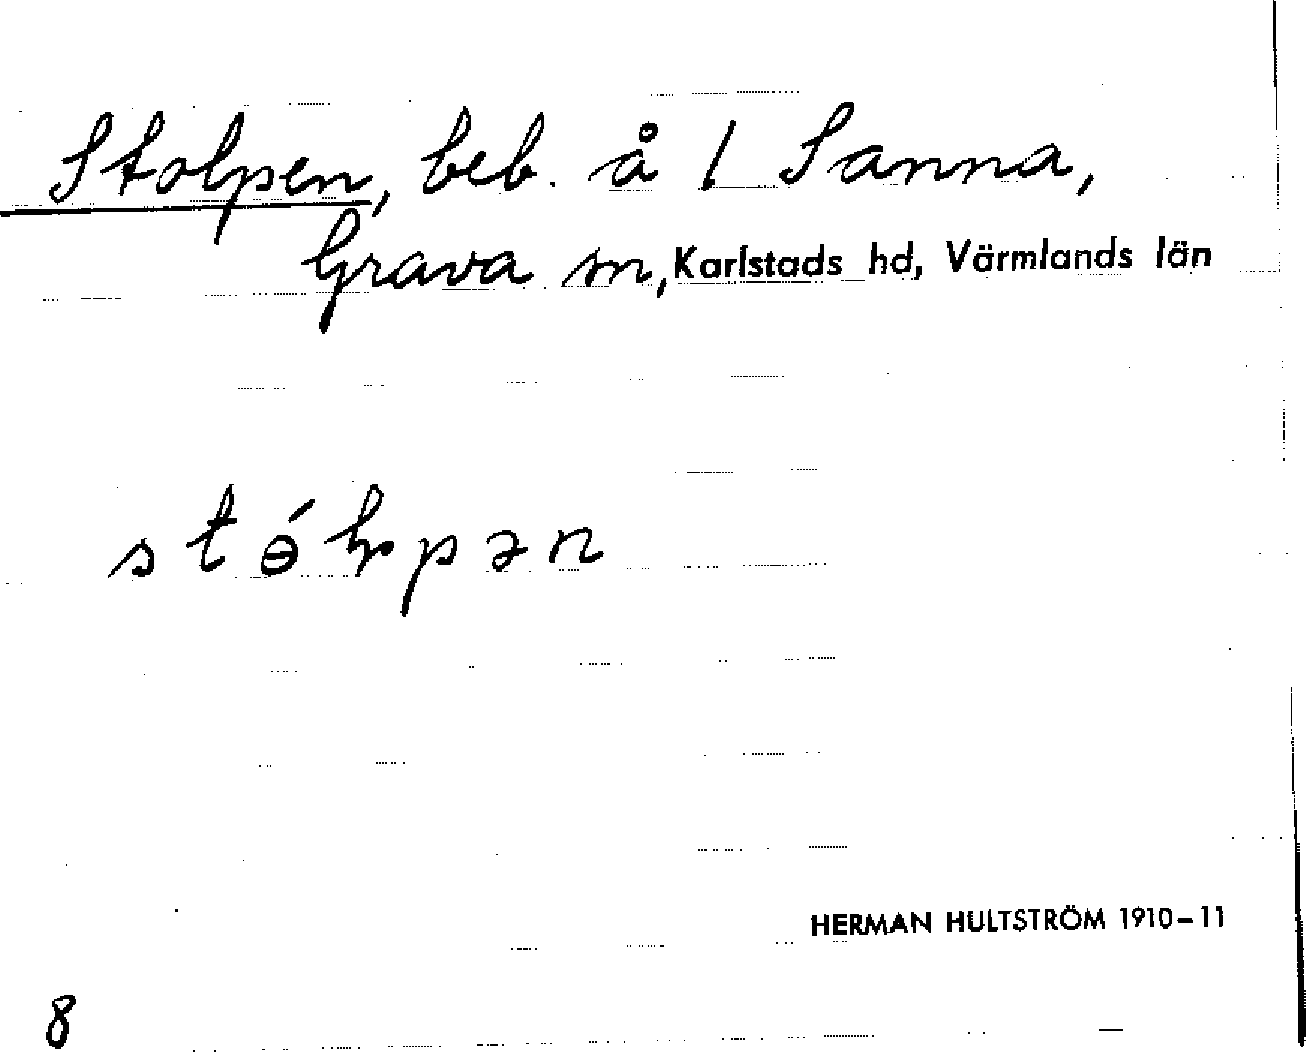 Stolpen, beb. å 1 Sanna,
Grava sn, Karlstads hd, Värmlands län
HERMAN HULTSTRÖM 1910-11
8